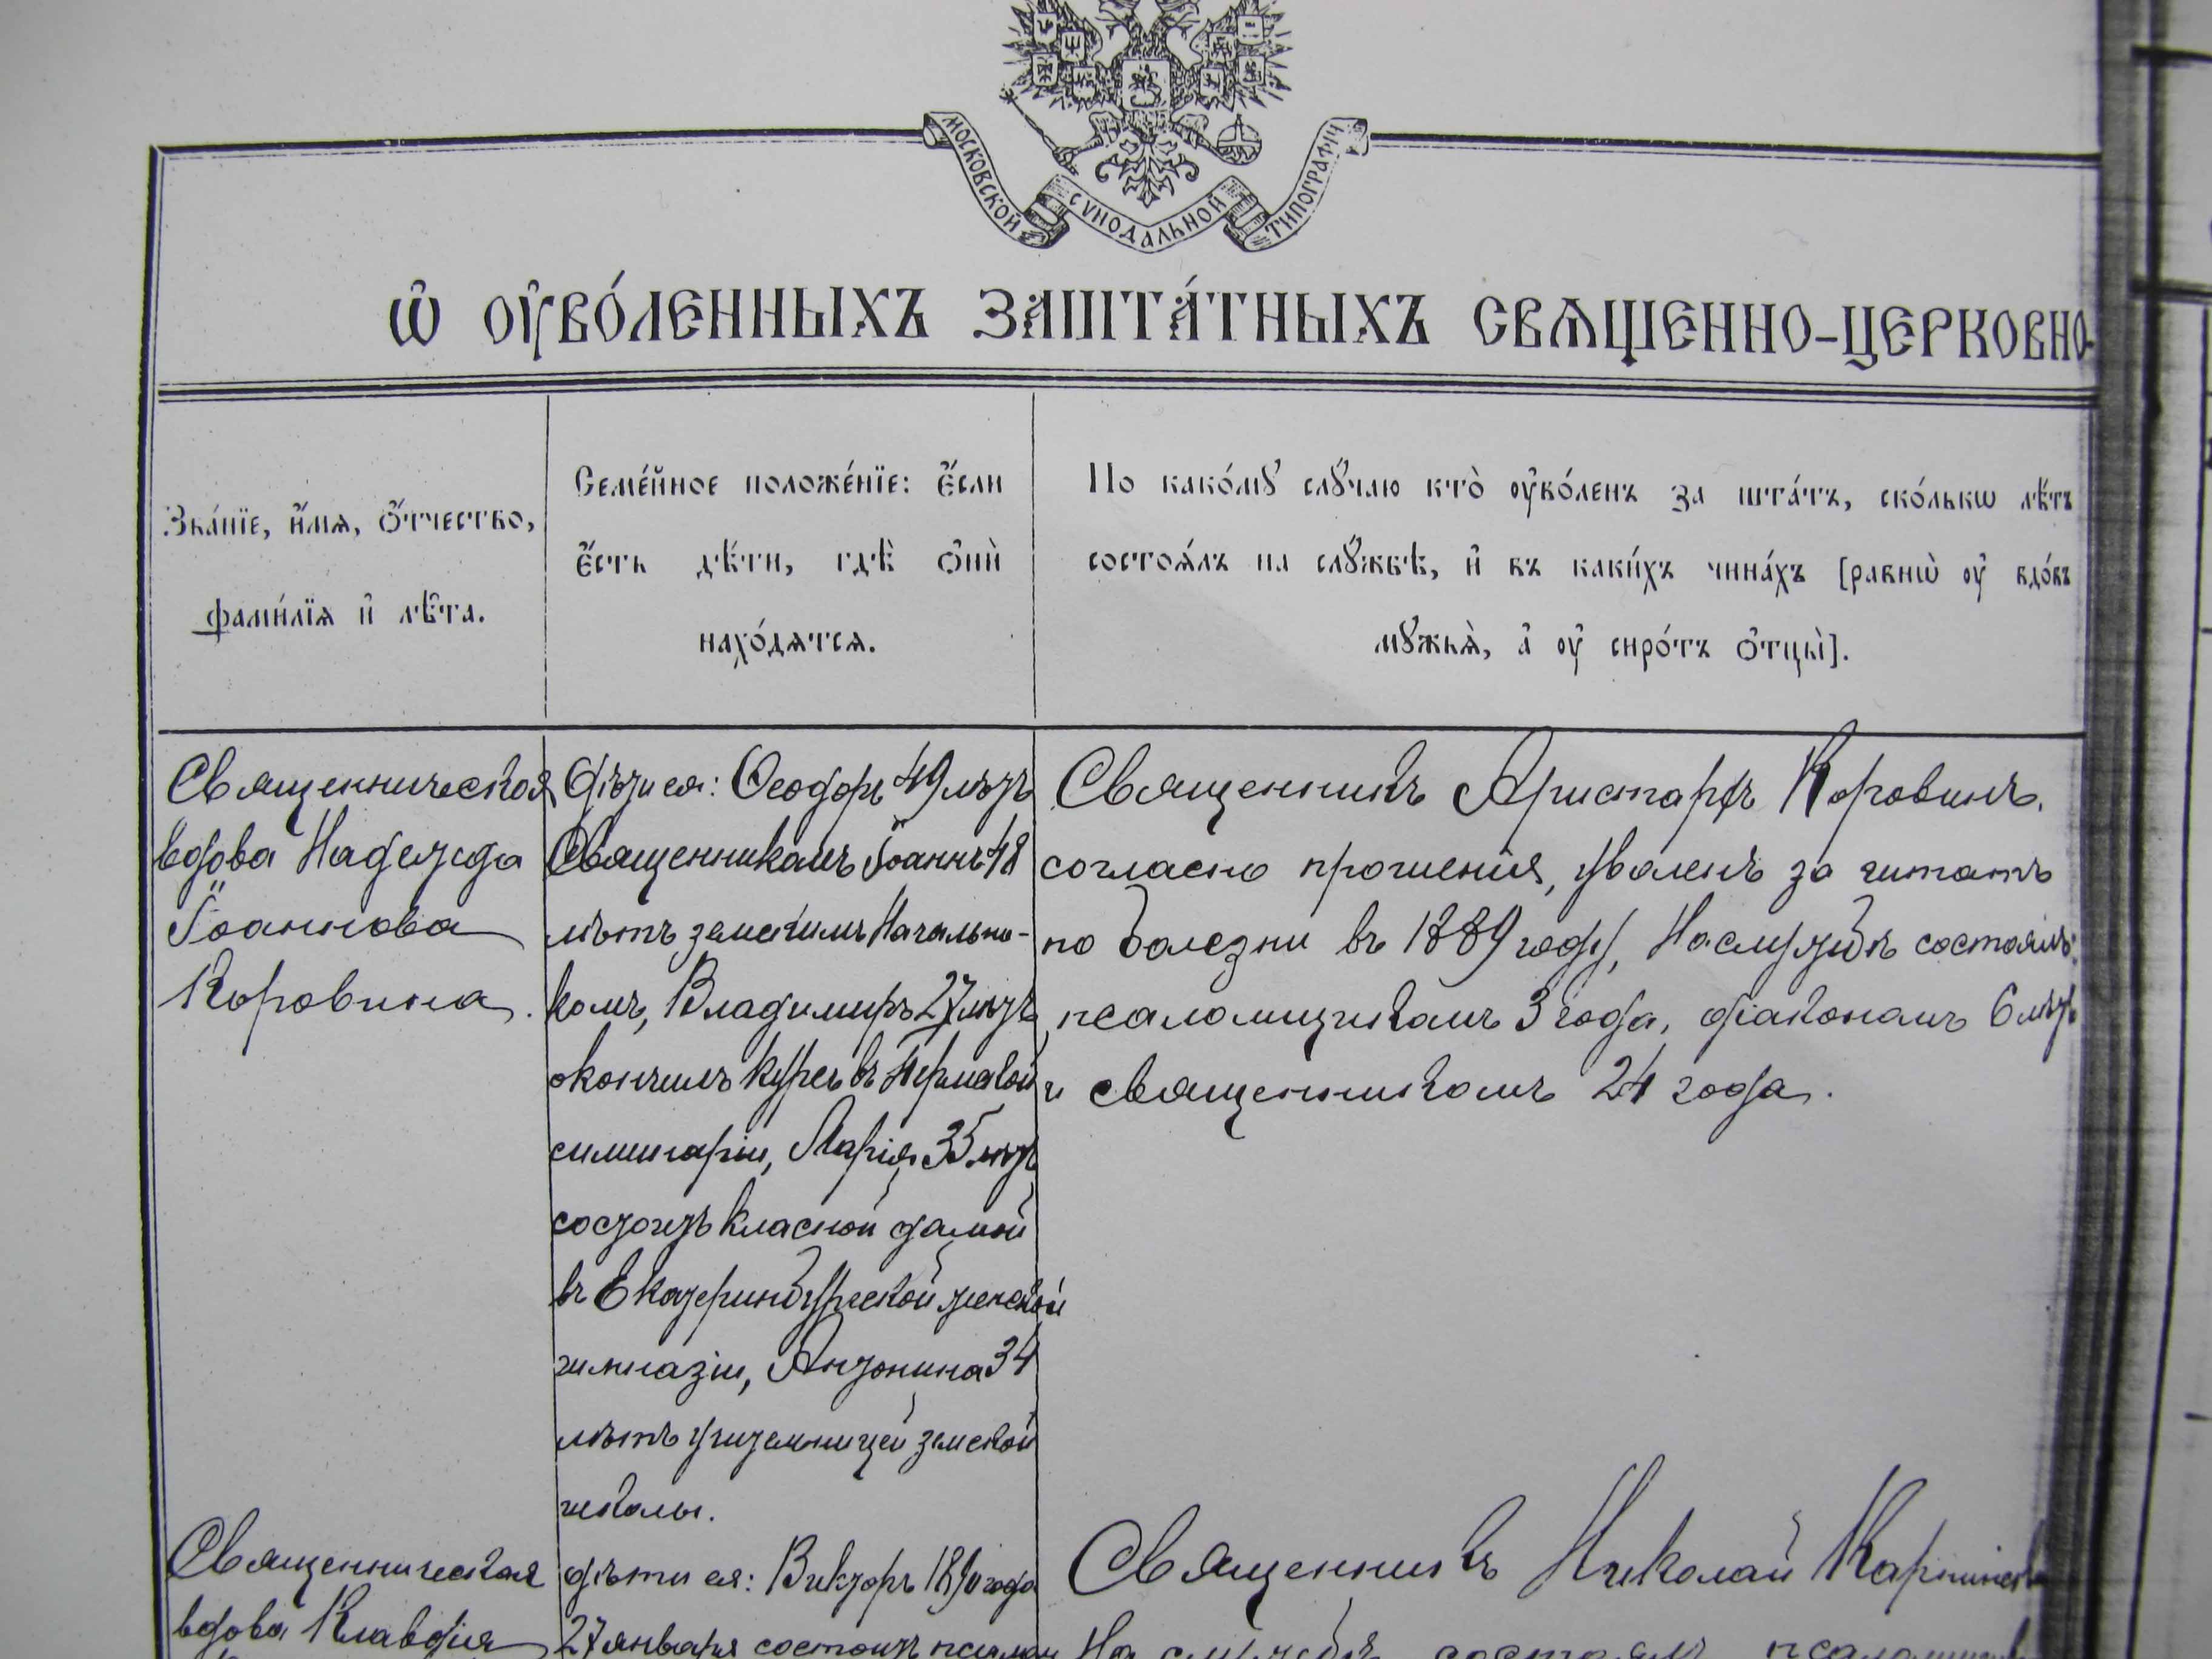 МОСКОВСКОЙ СѴНОДАЛЬНОЙ ТИПОГРАФІИ
Ѡ ОУ҆ВО́ЛЕННЫХЪ ЗАШТА́ТНЫХЪ СВѦЩЕННО-ЦЕРКОВНО-
Зва́нїе, и҆́мѧ, ѻ҆́тчество,
фами́лїѧ и҆ лѣ̑та.
Семе́йное положе́нїе: є҆́сли
є҆́сть дѣ́ти, гдѣ̀ ѻ҆нѝ
нахо́дѧтсѧ.
По како́мꙋ слꙋ́чаю кто̀ оу҆во́ленъ за шта́тъ, ско́лькѡ лѣ́тъ
состоѧ́лъ на слꙋ́жбѣ, и҆ въ каки́хъ чина́хъ [равнѡ̀ оу҆ вдо́въ
мꙋжьѧ̀, а҆ оу҆ сиро́тъ ѻ҆тцы̀].
Священническая
вдова Надежда
Іоаннова
Коровина.
Дѣти ея: Ѳеодоръ 49 лѣтъ
Священникомъ Іоаннъ 48
лѣтъ земскимъ Начальни-
комъ, Владимиръ 27 лѣтъ
окончилъ курсъ въ Пермской
симинаріи, Марія 35 лѣтъ
состоитъ класной дамой
въ Екатеринбургской женской
гимназіи, Антонина 34
лѣтъ учительницей земской
школы.
Священникъ Аристархъ Коровинъ.
согласно прошенія, уволенъ за штатъ
по болезни въ 1889 году, На службѣ состоялъ:
псаломщикомъ 3 года, діакономъ 6 лѣтъ
и священникомъ 24 года.
Священническая
вдова Клавдія
дѣти ея: Викторъ 1890 года
27 января состоитъ псалом
Священникъ Николай
На службѣ состоялъ